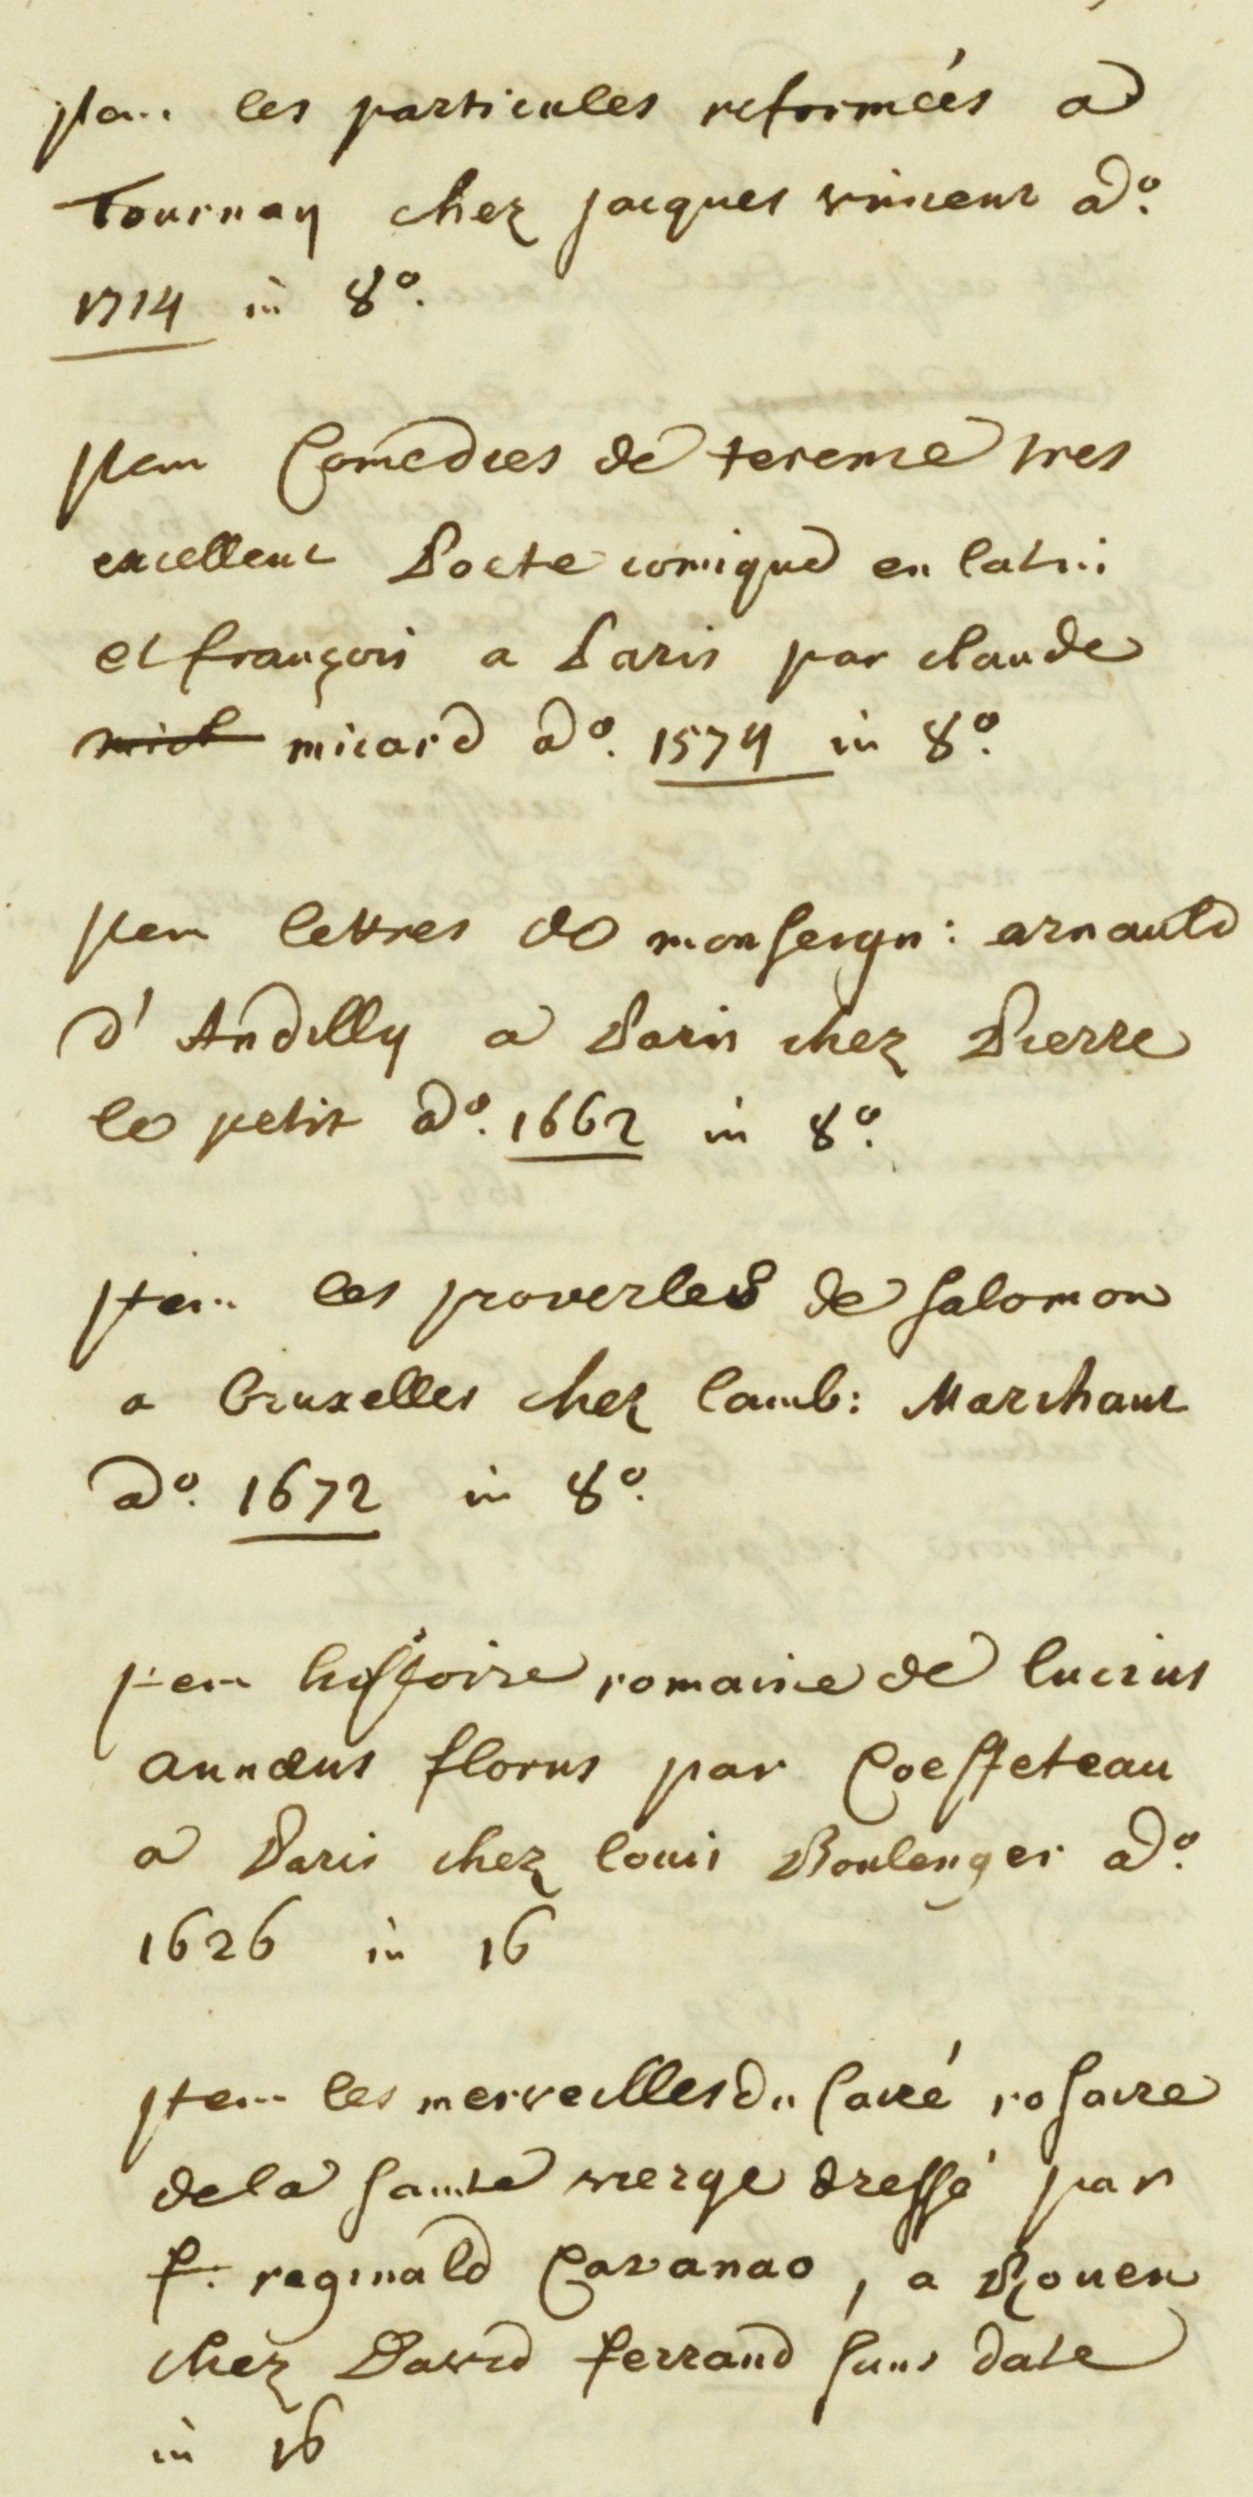 item les particules reformées a
Tournay chez jacques vincent ao.
1714 in 8o.
item Comedies de terence tres
excellent Poete comique en latin
et françois a Paris par claude
mich micard ao. 1574 in 8o.
item lettres de monseign: arnauld
d'Andilly a Paris chez Pierre
le petit ao. 1662 in 8o.
item les proverbes de salomon
a bruxelles chez lamb: Marchant
ao. 1672 in 8o.
item histoire romaine de lucius
annæus florus par Coeffeteau
a Paris chez louis Boulenger ao.
1626 in 16
item les merveilles du sacré rosaire
de la sainte vierge dressé par
f. reginald Cavanac, a Rouen
chez David ferrand sans date
in 16